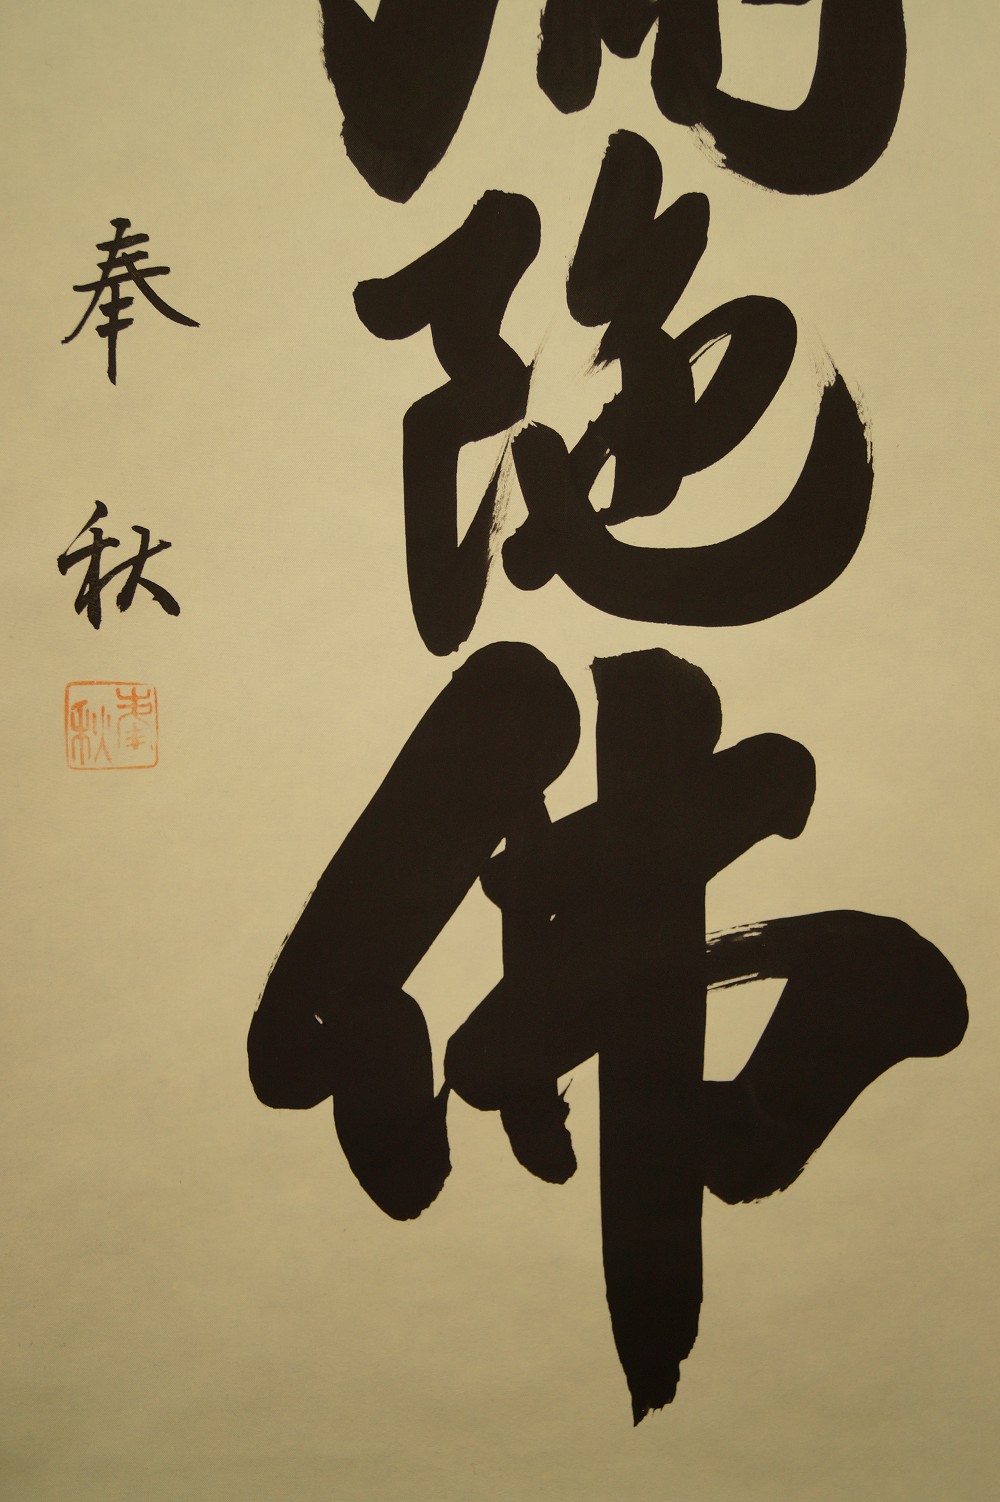 陀佛
奉秋
奉秋